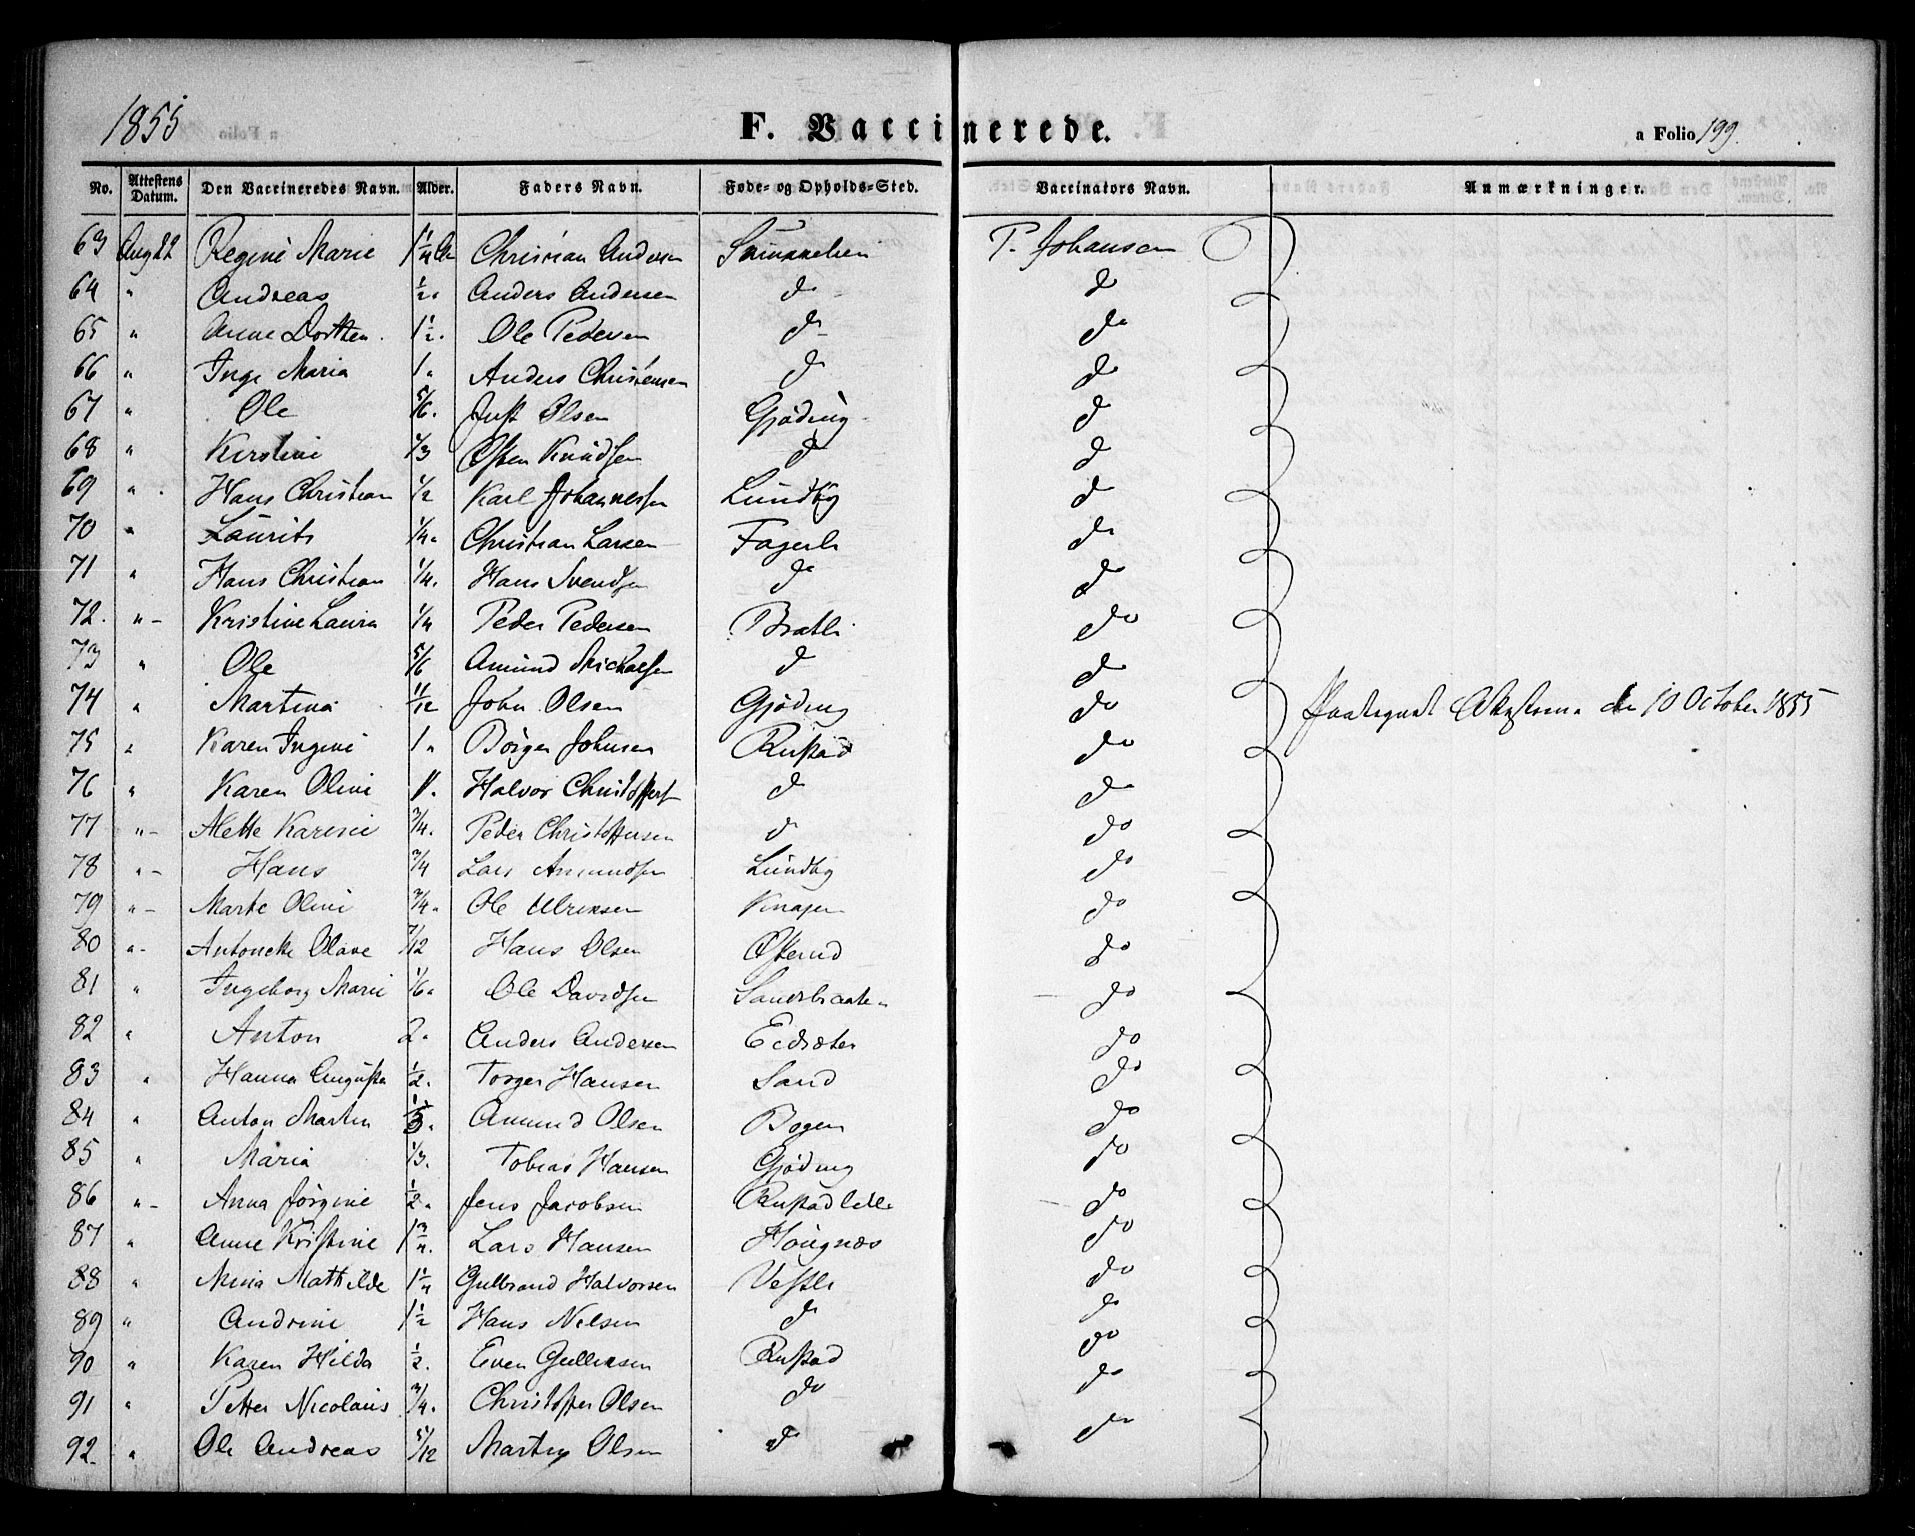 1855 F. Vaccinerede. a Folio 199.
No. Attestens Datum. Den Vaccineredes Navn. Alder. Faders Navn. Føde- og Opholds-Sted. Vaccinators Navn. Anmærkninger.
63 Aug 22 Regine Marie 1 1/4 Christian Andersen P. Johansen
64 " Andreas 1/2 Anders Andersen do do
65 " Anne Dorthea 1 1/2. Ole Pedersen do do
66 " Inge Maria 1 " Anders Christensen do do
67 " Ole 5/6. Just Olsen Gjöding do
68 " Kirstine 1/3 Osten Knudsen do do
69 " Hans Christian 1/2 Karl Johannessen Lundby do
70 " Laurits 1/4 " Christian Larsen Fagerli do
71 " Hans Christian 1/4. Hans Svendsen do do
72. " - Kristine Laura 1/4 Peder Pedersen Bratli do
73 " Ole 5/6 Amund Michaelsen do do
74 " Martina 11/12 John Olsen Gjöding do den 10 October 1855
75 " Karen Ingine 1 " Börger Johnsen Rustad do
76 " Karen Oline 1. Halvor Christoffers do do
77 " - Mette Karine 3/4. Peder Christoffersen do do
78 " - Hans 3/4 Lars Amundsen Lundby do
79 " - Marte Oline 3/4 " Ole Ulriksen Knapen do
80 " - Antonette Olave 7/12 Hans Olsen Österud do
81 " Ingeborg Marie 1/6 " Ole Davidsen Sandsbraaten do
82 " Anton 2 " Anders Andersen Edsæter do
83 " Hanna Augusta 1/2. Torger Hansen Sand do
84 " Anton Martin Amund Olsen Bogen do
85 " Maria 1/3. Tobias Hansen Gjöding do
86 " - Anna Jörgine 1/2 " Jens Jacobsen Rustad lille do
87 " Anne Kristine 1 3/4. Lars Hansen Höugnæs do
88 " Mina Mathilde 1 1/4 Gulbrand Halvorsen Vestli do
89 " Andrine 1 1/2 Hans Nilsen do do
90 " Karen Hilda 1/2. Even Gulliksen Rustad do
91 " Petter Nicolaus 3/4. Christoffer Olsen do do
92. " Ole Andreas 5/12 Martin Olsen do do